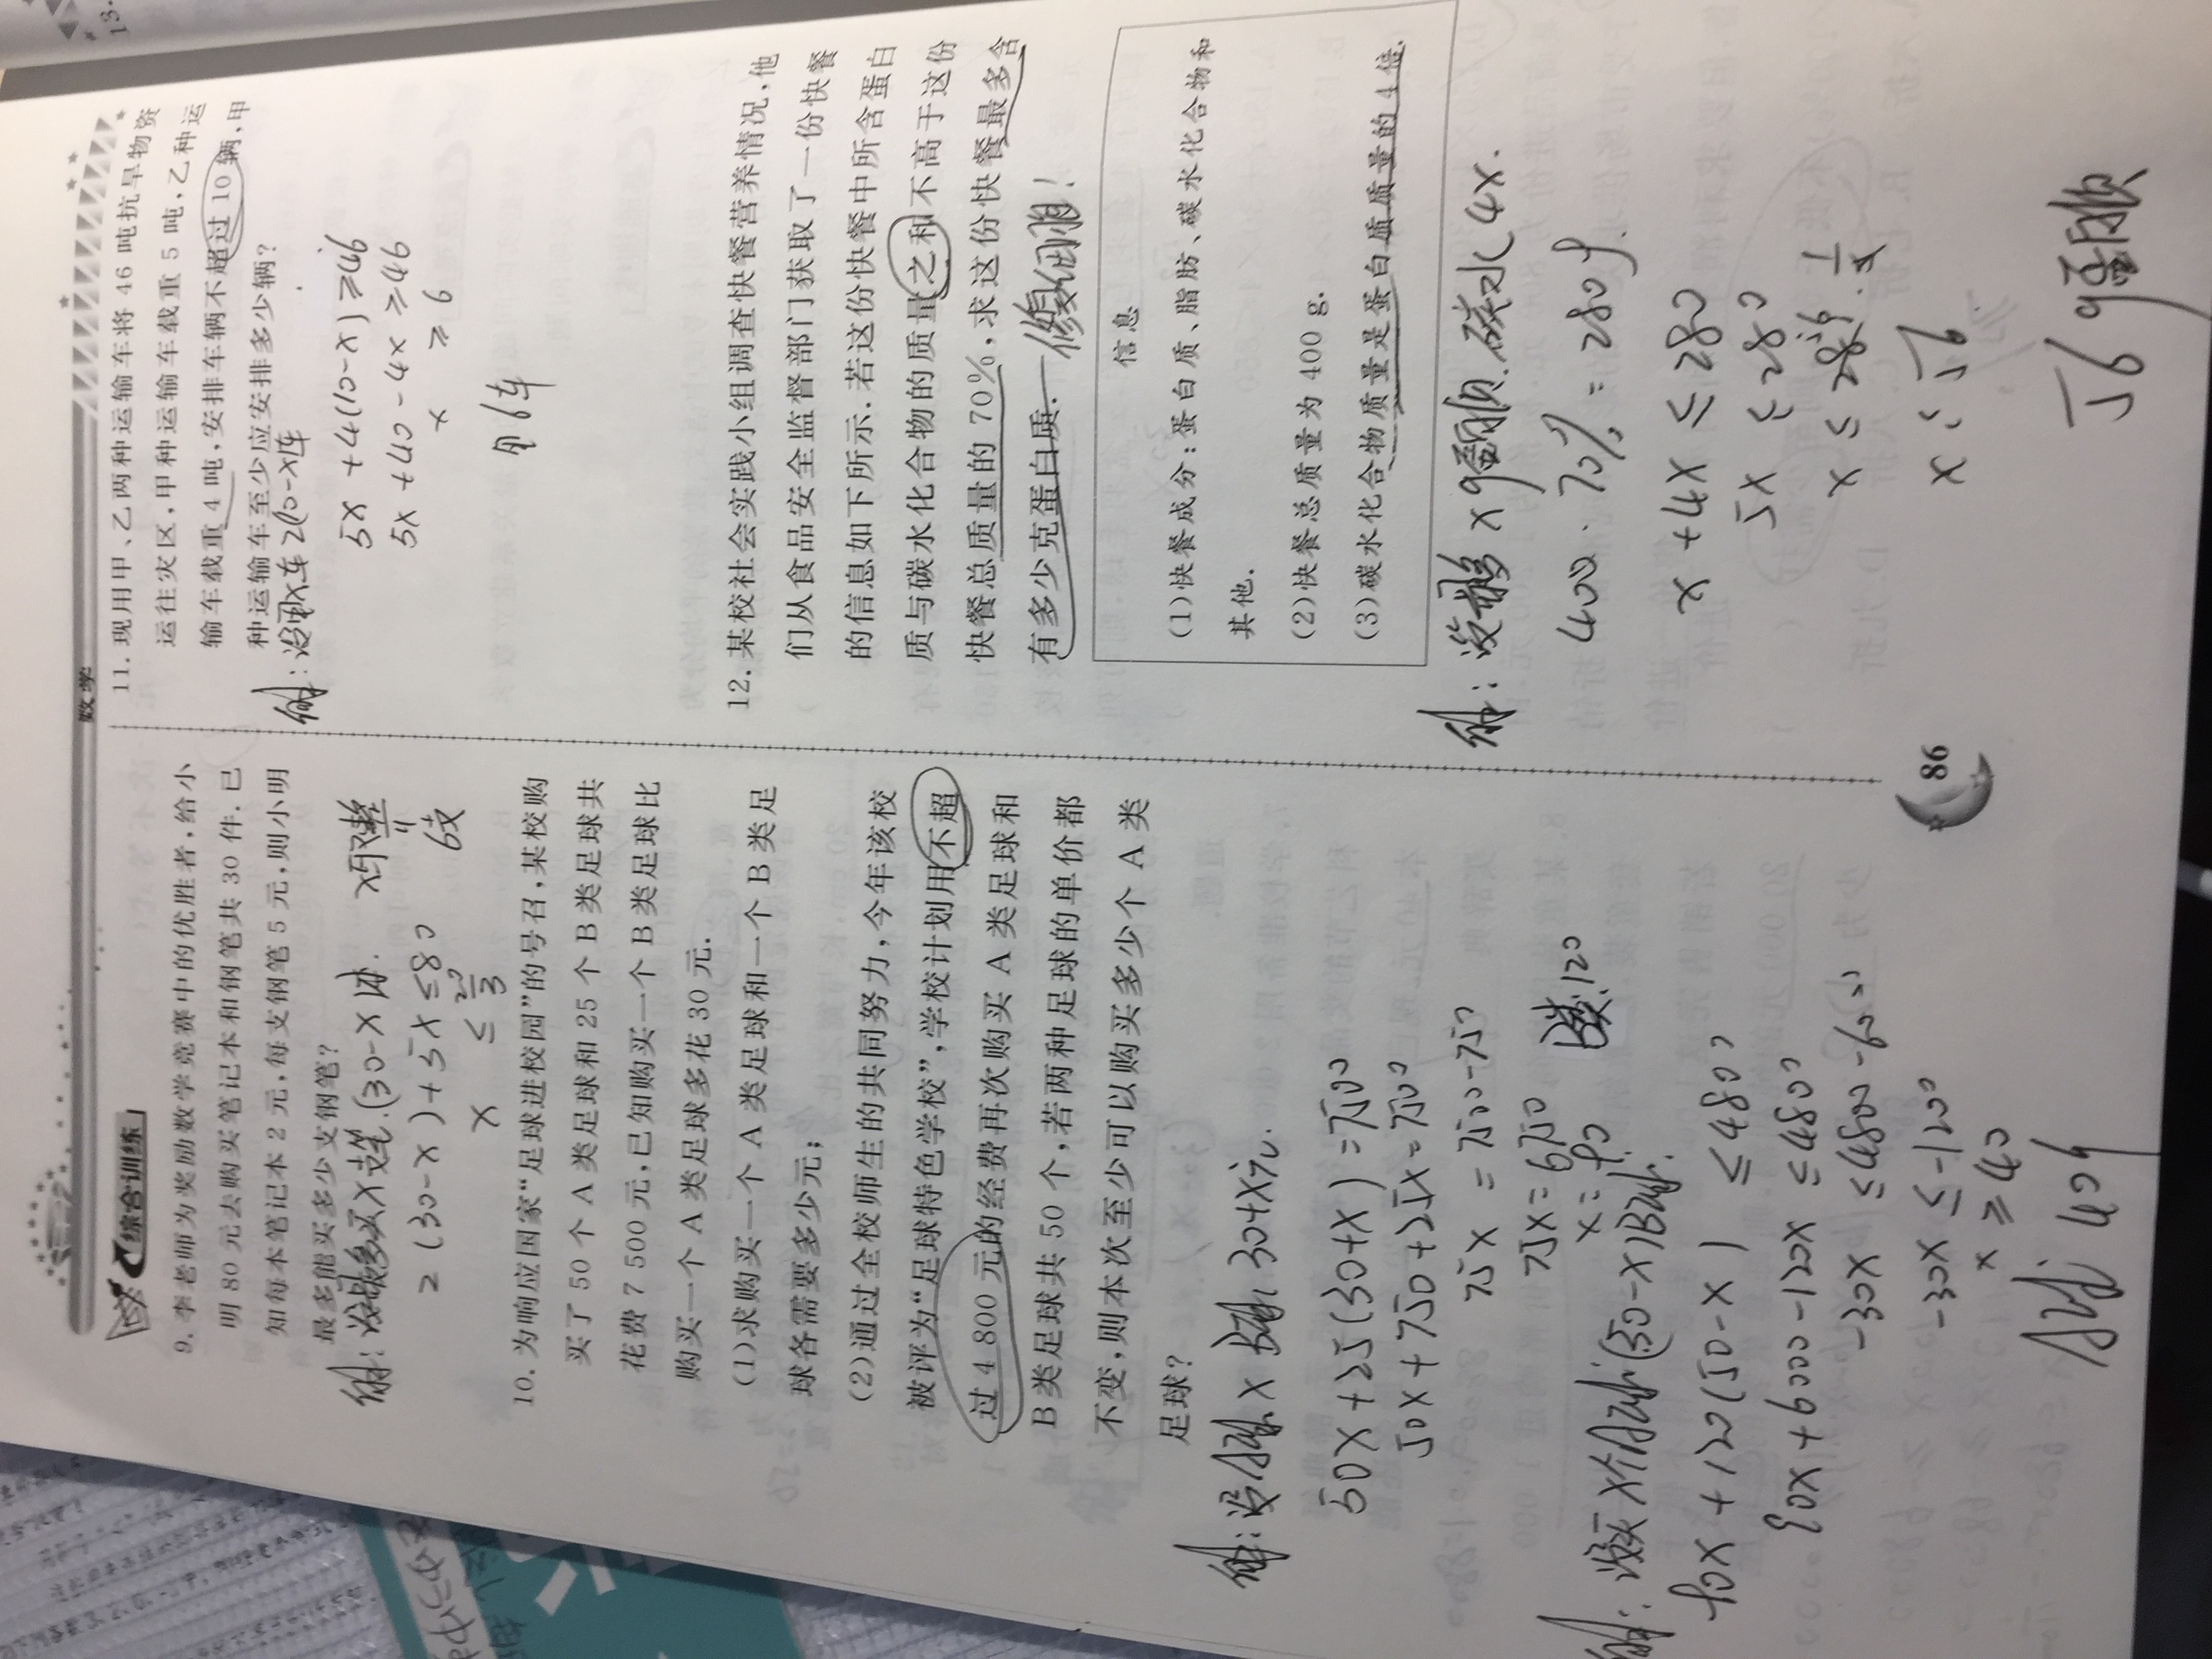 数学
综合训练
9. 李老师为奖励数学竞赛中的优胜者,给小
明 80 元去购买笔记本和钢笔共 30 件. 已
知每本笔记本 2 元,每支钢笔 5 元,则小明
最多能买多少支钢笔?
解: 设最多买 x 支笔. (30-x)本. x取整
2(30-x)+5x≤80
6支
x ≤ 20/3
10. 为响应国家“足球进校园”的号召,某校购
买了 50 个 A 类足球和 25 个 B 类足球共
花费 7 500 元,已知购买一个 B 类足球比
购买一个 A 类足球多花 30 元.
(1)求购买一个 A 类足球和一个 B 类足
球各需要多少元;
(2)通过全校师生的共同努力,今年该校
被评为“足球特色学校”,学校计划用不超
过 4 800 元的经费再次购买 A 类足球和
B 类足球共 50 个,若两种足球的单价都
不变,则本次至少可以购买多少个 A 类
足球?
解: 设A球 x B球 30+x元.
50x+25(30+x)=7500
50x+750+25x=7500
75x = 7500-750
75x=6750
x=90 B类:120
解: 设买 x个A球 (50-x)B球.
90x+120(50-x) ≤4800
90x+6000-120x ≤4800
-30x ≤4800-6000
-30x ≤-1200
x ≥40
A球 40个
11. 现用甲、乙两种运输车将 46 吨抗旱物资
运往灾区,甲种运输车载重 5 吨,乙种运
输车载重 4 吨,安排车辆不超过 10 辆,甲
种运输车至少应安排多少辆?
解: 设甲x车 乙(10-x)车
5x+4(10-x)≥46
5x+40-4x≥46
x ≥6
甲6车
12. 某校社会实践小组调查快餐营养情况,他
们从食品安全监督部门获取了一份快餐
的信息如下所示. 若这份快餐中所含蛋白
质与碳水化合物的质量之和不高于这份
快餐总质量的 70%,求这份快餐最多含
有多少克蛋白质. 修复细胞!
信息
(1)快餐成分:蛋白质、脂肪、碳水化合物和
其他.
(2)快餐总质量为 400 g.
(3)碳水化合物质量是蛋白质质量的 4 倍.
解: 设最多 x g蛋白质. 碳水 4x.
400 · 70% = 280g.
x+4x ≤ 280
5x ≤ 280
x ≤ 56
56 g蛋白质
86